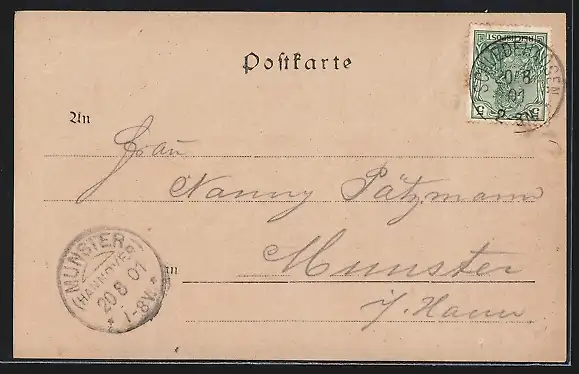 Postkarte
REICHSPOST
5 5
SCHIEDEHAUSEN
20/8
01
An
Frau
Nanny Pätzmann
in Munster
i/ Hann
MUNSTER
(HANNOVER)
20 8 01
* 7-8V. *